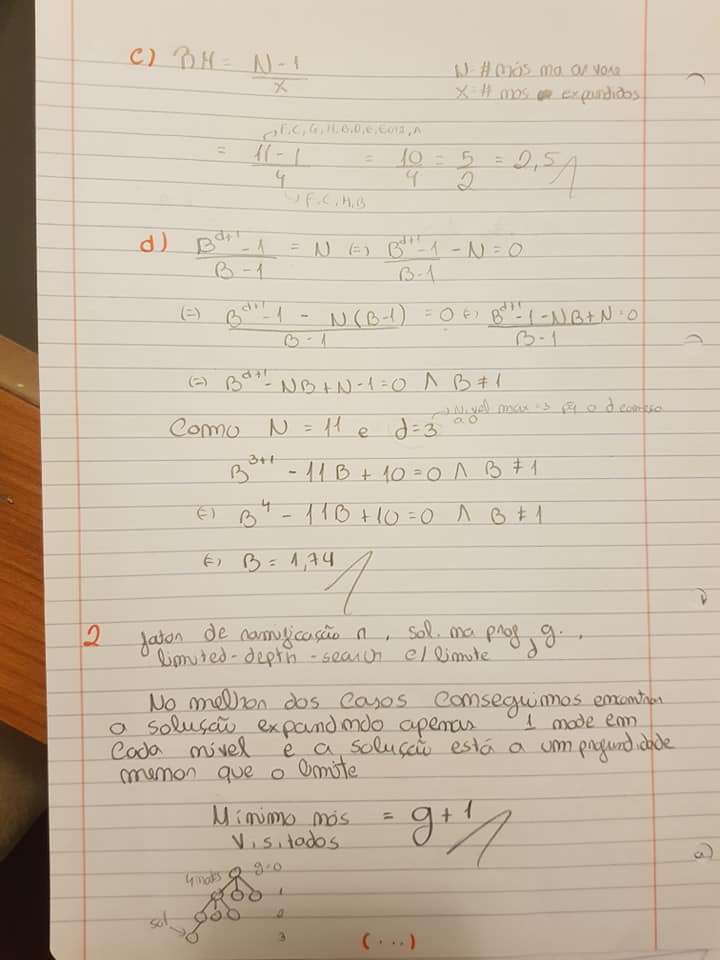 c) BM = N-1 / X
N-# nós na arvore
X-# nos expandidos
F, C, G, H, B, D, e,
= 11-1 / 4 = 10 / 4 = 5 / 2 = 2,5
F, C, H, B
d) B^(d+1) - 1 / B - 1 = N (=) B^(d+1) - 1 / B-1 - N = 0
(=) B^(d+1) - 1 - N(B-1) / B-1 = 0 (=) B^(d+1) - 1 - NB + N = 0 / B-1
(=) B^(d+1) - NB + N - 1 = 0 ∧ B ≠ 1
Como N = 11 e d=3 → Nível max = 3 pq o d começa a 0
B^(3+1) - 11B + 10 = 0 ∧ B ≠ 1
(=) B^4 - 11B + 10 = 0 ∧ B ≠ 1
(=) B = 1,74
2 fator de ramificação n, sol. na prof g.,
limited-depth-search c/ limite d
No melhor dos casos conseguimos encontrar
a solução expandindo apenas 1 node em
cada nível e a solução está a um profundidade
menor que o limite
Mínimo nós = g+1
visitados
4 nodes g=0
1
2
sol
3
(...)
a)